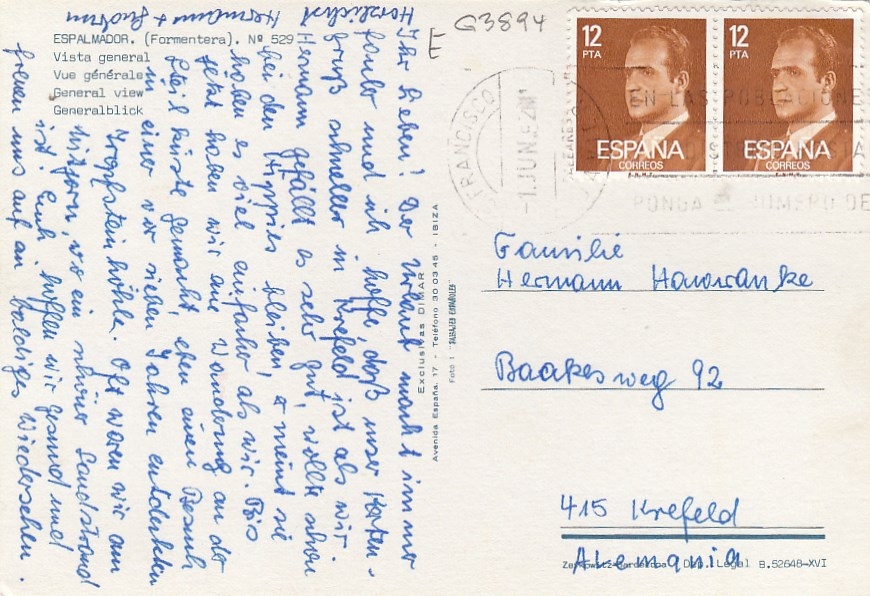 ESPALMADOR. (Formentera). Nº 529
Vista general
Vue générale
General view
Generalblick
Ihr Lieben! Der Urlaub macht immer
und ich hoffe, daß unser Karten-
gruß schneller in Krefeld ist als wir.
Hermann gefällt es sehr gut, wollte schon
bei den Hippies bleiben, er meint sie
haben es viel einfacher als wir. Bis
jetzt haben wir eine Wanderung an der
Steilküste gemacht, eben einen Besuch
in einer vor sieben Jahren entdeckten
Tropfsteinhöhle. Oft waren wir am
Mitjorn, wo ein schöner Sandstrand
ist. Euch hoffen wir gesund und
freuen uns auf ein baldiges Wiedersehen.
Herzlichst
Hermann +
Exclusivas DIMAR
Avenida España, 17 - Teléfono 30 03 45 - IBIZA
Foto:
E G3894
12
PTA
ESPAÑA
CORREOS
12
PTA
ESPAÑA
CORREOS
FRANCISCO
-1.JUN.82
EN LAS POBLACIONES
PONGA EL NUMERO DE
Familie
Hermann Hawranke
Baakesweg 92
415 Krefeld
Alemania
Dep. Legal B.52648-XVI